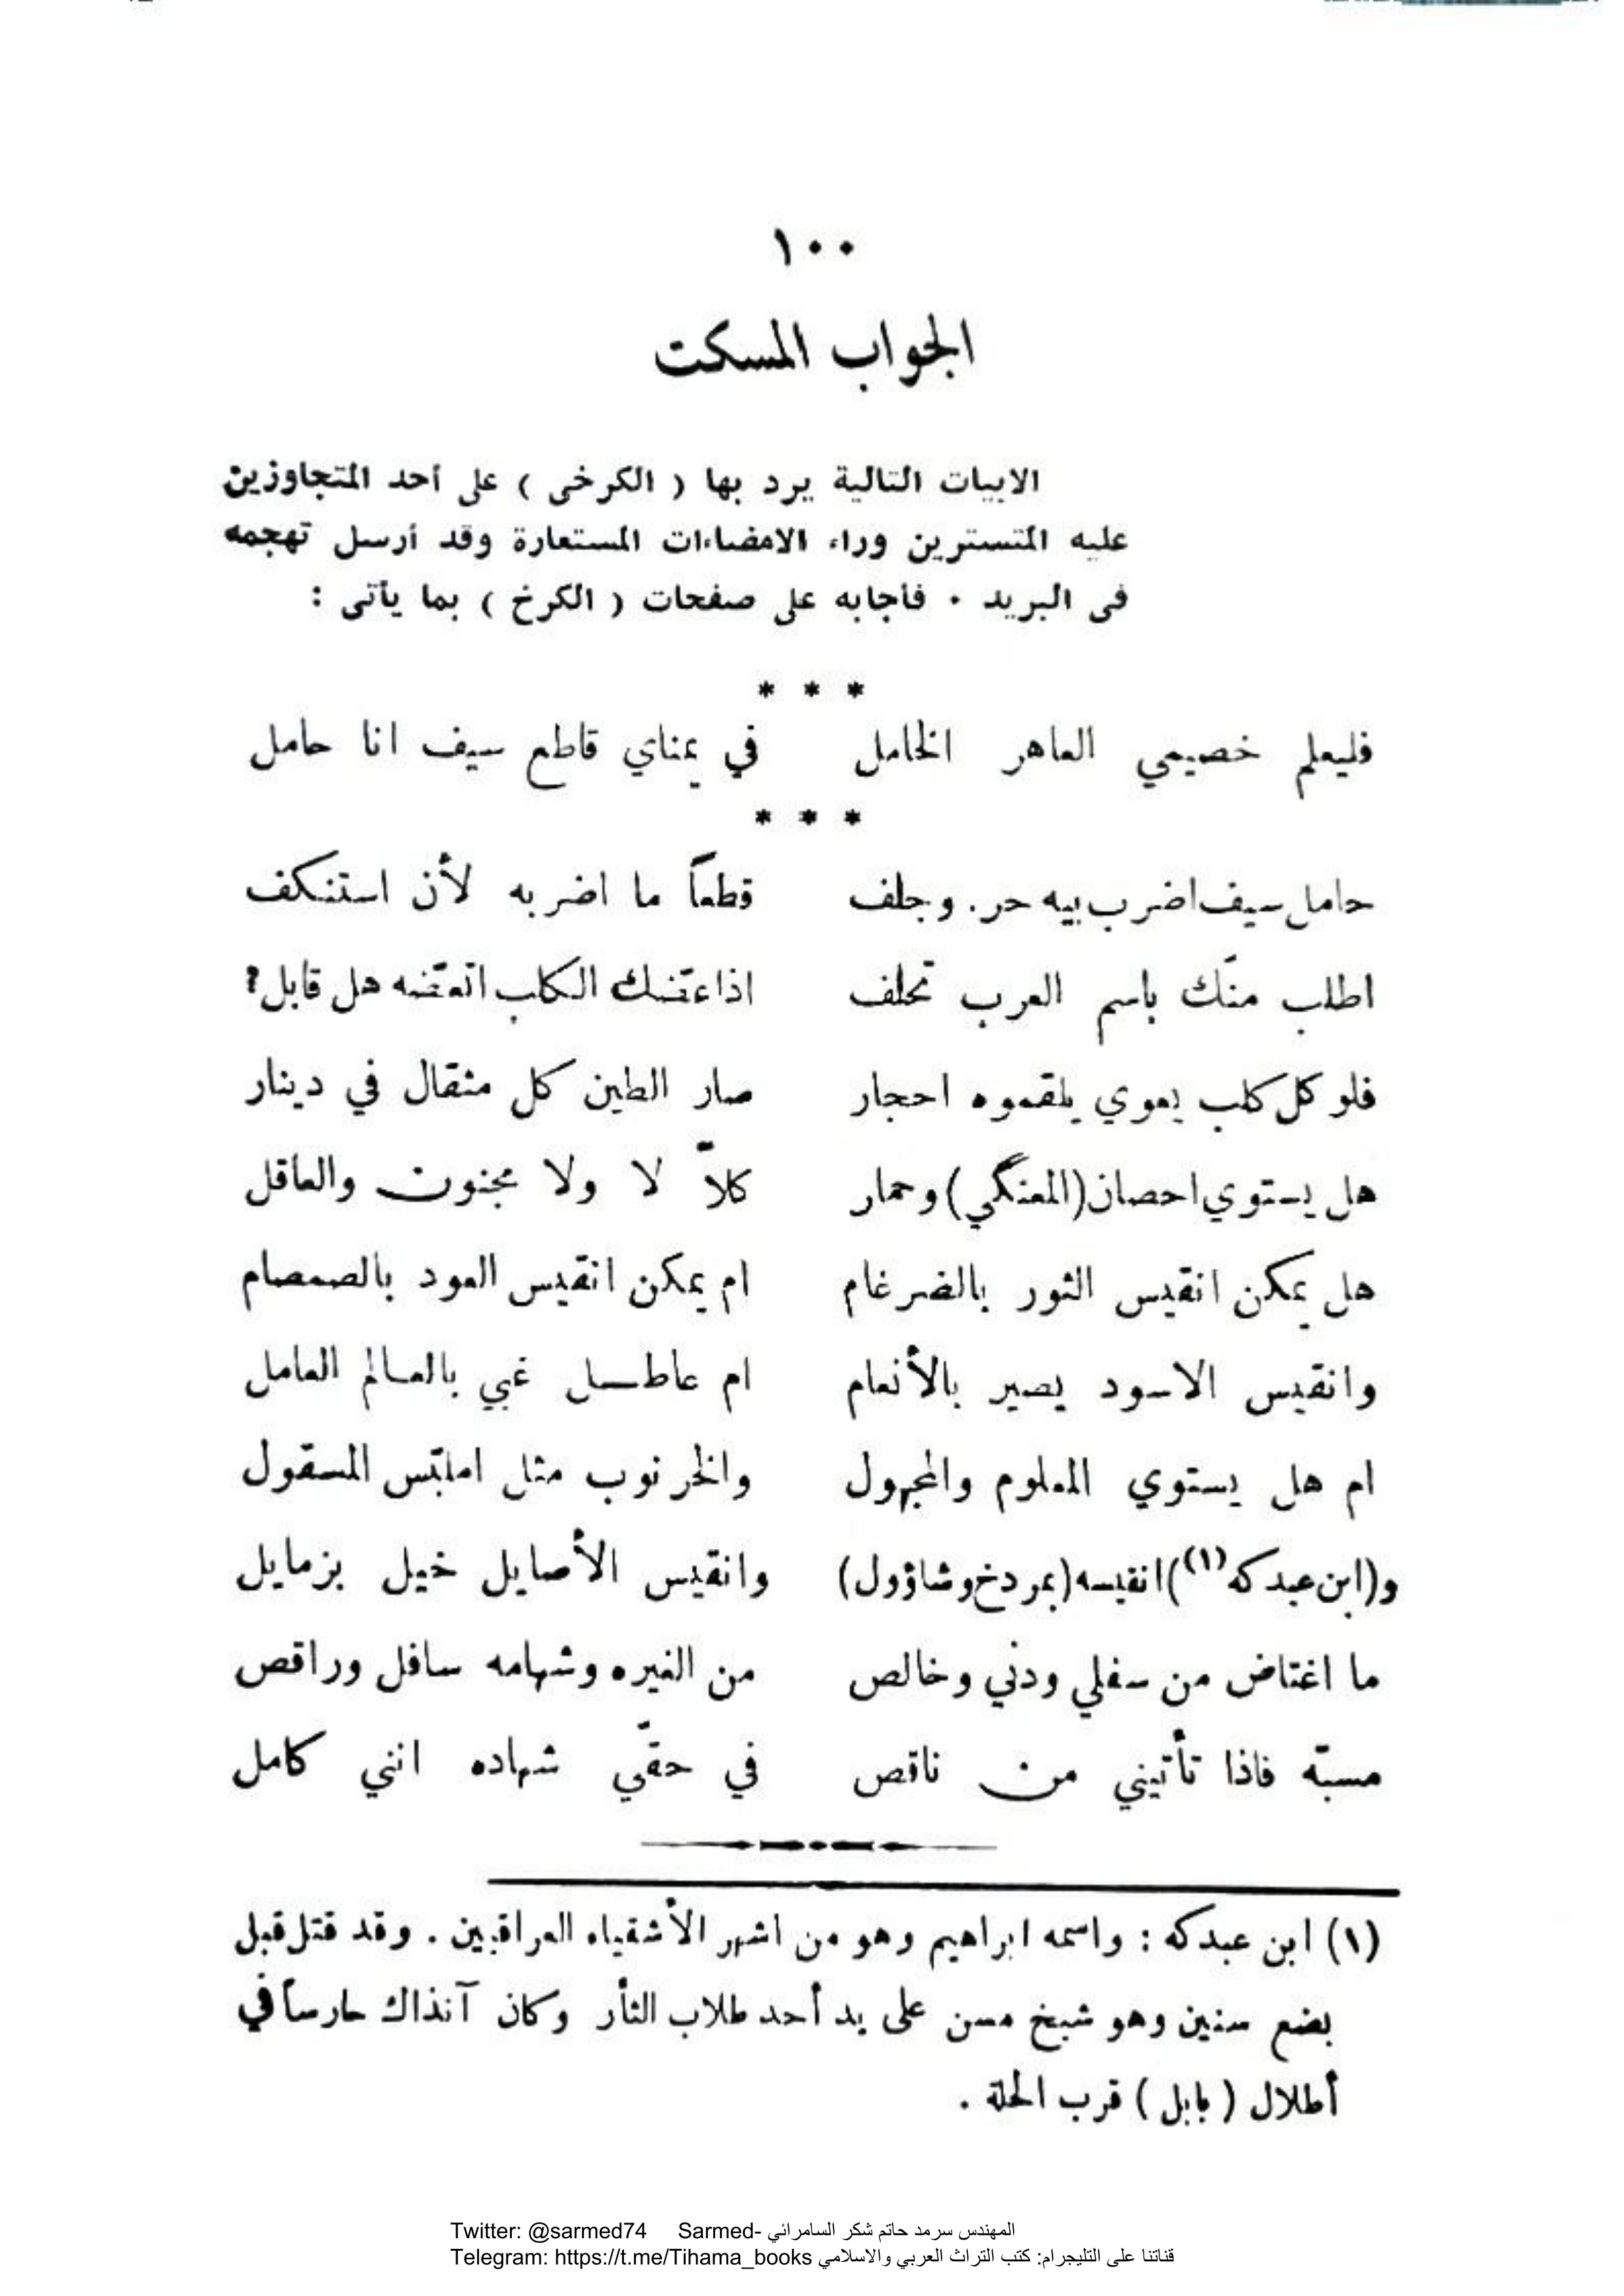 ١٠٠
الجواب المسكت
الابيات التالية يرد بها ( الكرخى ) على أحد المتجاوزين
عليه المتسترين وراء الامضاءات المستعارة وقد أرسل تهجمه
فى البريد ٠ فأجابه على صفحات ( الكرخ ) بما يأتى :
* * *
فليعلم خصيمي العاهر الخامل في يمناي قاطع سيف انا حامل
* * *
حامل سيف اضرب بيه حر . وجلف قطعاً ما اضربه لأن استنكف
اطلب منّك باسم العرب تحلف اذا عضّك الكلب اتعضّه هل قابل؟
فلو كل كلب يعوي يلقموه احجار صار الطين كل مثقال في دينار
هل يستوي احصان (المعنگي) وحمار كلاّ لا ولا مجنون والعاقل
هل يمكن انقيس الثور بالضرغام ام يمكن انقيس العود بالصمصام
وانقيس الاسود يصير بالأنعام ام عاطل غبي بالعالم العامل
ام هل يستوي المعلوم والمجهول والخرنوب مثل املبّس المسقول
و(ابن عبدكه (١)) انقيسه (بمردخ وشاؤول) وانقيس الأصايل خيل بزمايل
ما اغتاض من سفلي ودني وخالص من الغيره وشهامه سافل وراقص
مسبّه فاذا تأتيني من ناقص في حقّي شهاده انني كامل
(١) ابن عبدكه : واسمه ابراهيم وهو من اشهر الأشقياء العراقيين . وقد قتل قبل
بضع سنين وهو شيخ مسن على يد أحد طلاب الثأر وكان آنذاك حارساً في
أطلال ( بابل ) قرب الحلة .
Twitter: @sarmed74 Sarmed- المهندس سرمد حاتم شكر السامرائي
Telegram: https://t.me/Tihama_books قناتنا على التليجرام: كتب التراث العربي والاسلامي